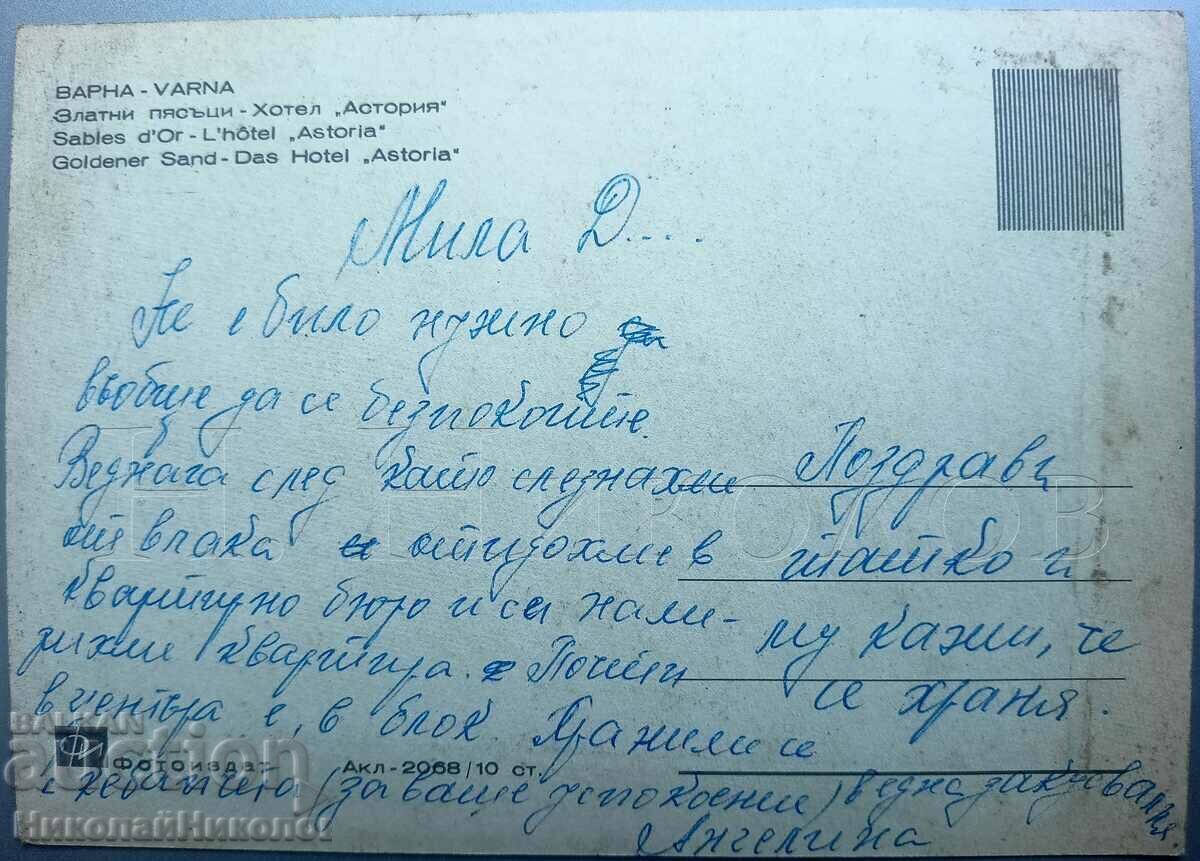 ВАРНА - VARNA
Златни пясъци - Хотел „Астория"
Sables d'Or - L'hôtel „Astoria"
Goldener Sand - Das Hotel „Astoria"
Мила Д....
Не е било нужно
въобще да се безпокоите.
Веднага след като слезнахме
от влака отидохме в
квартирно бюро и си нами-
рихме квартира. Почти
в центъра е, в блок. Хранили се
с кебапчета (за ваше успокоение) в една закусвалня.
Поздрави
татко и
му кажи, че
се храня.
Ангелина
Фотоиздат
Акл-2068/10 ст.
Н НИКОЛОВ
BALKAN
auction
НиколайНиколов